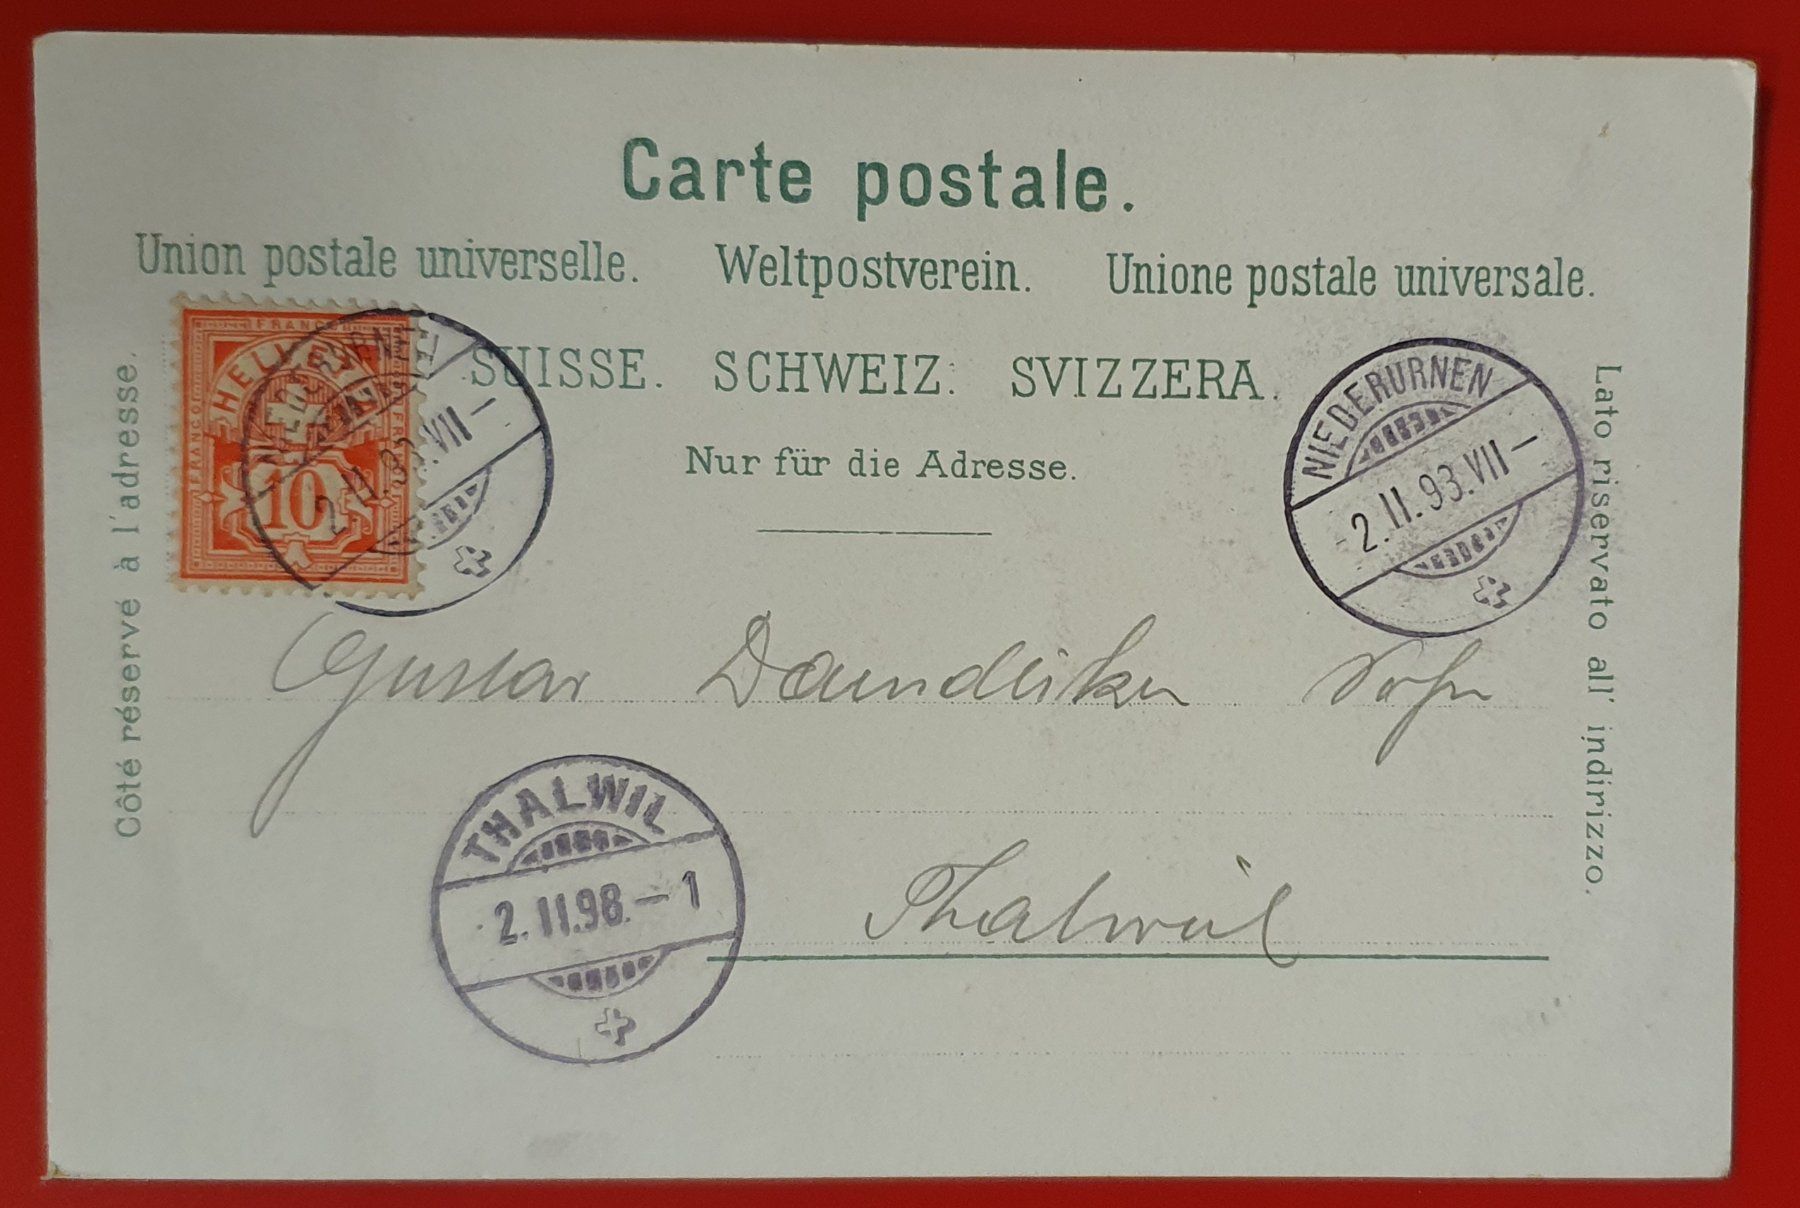 Carte postale.
Union postale universelle. Weltpostverein. Unione postale universale.
SUISSE. SCHWEIZ. SVIZZERA.
Nur für die Adresse.
Côté réservé à l'adresse.
Lato riservato all' indirizzo.
FRANCO
HELVETIA
FRANCO
FRANCO
10
NIEDERURNEN
2.II.93.VII–
NIEDERURNEN
2.II.93.VII–
Gustav Daendliker Sohn
THALWIL
2.II.98.–1
Thalwil